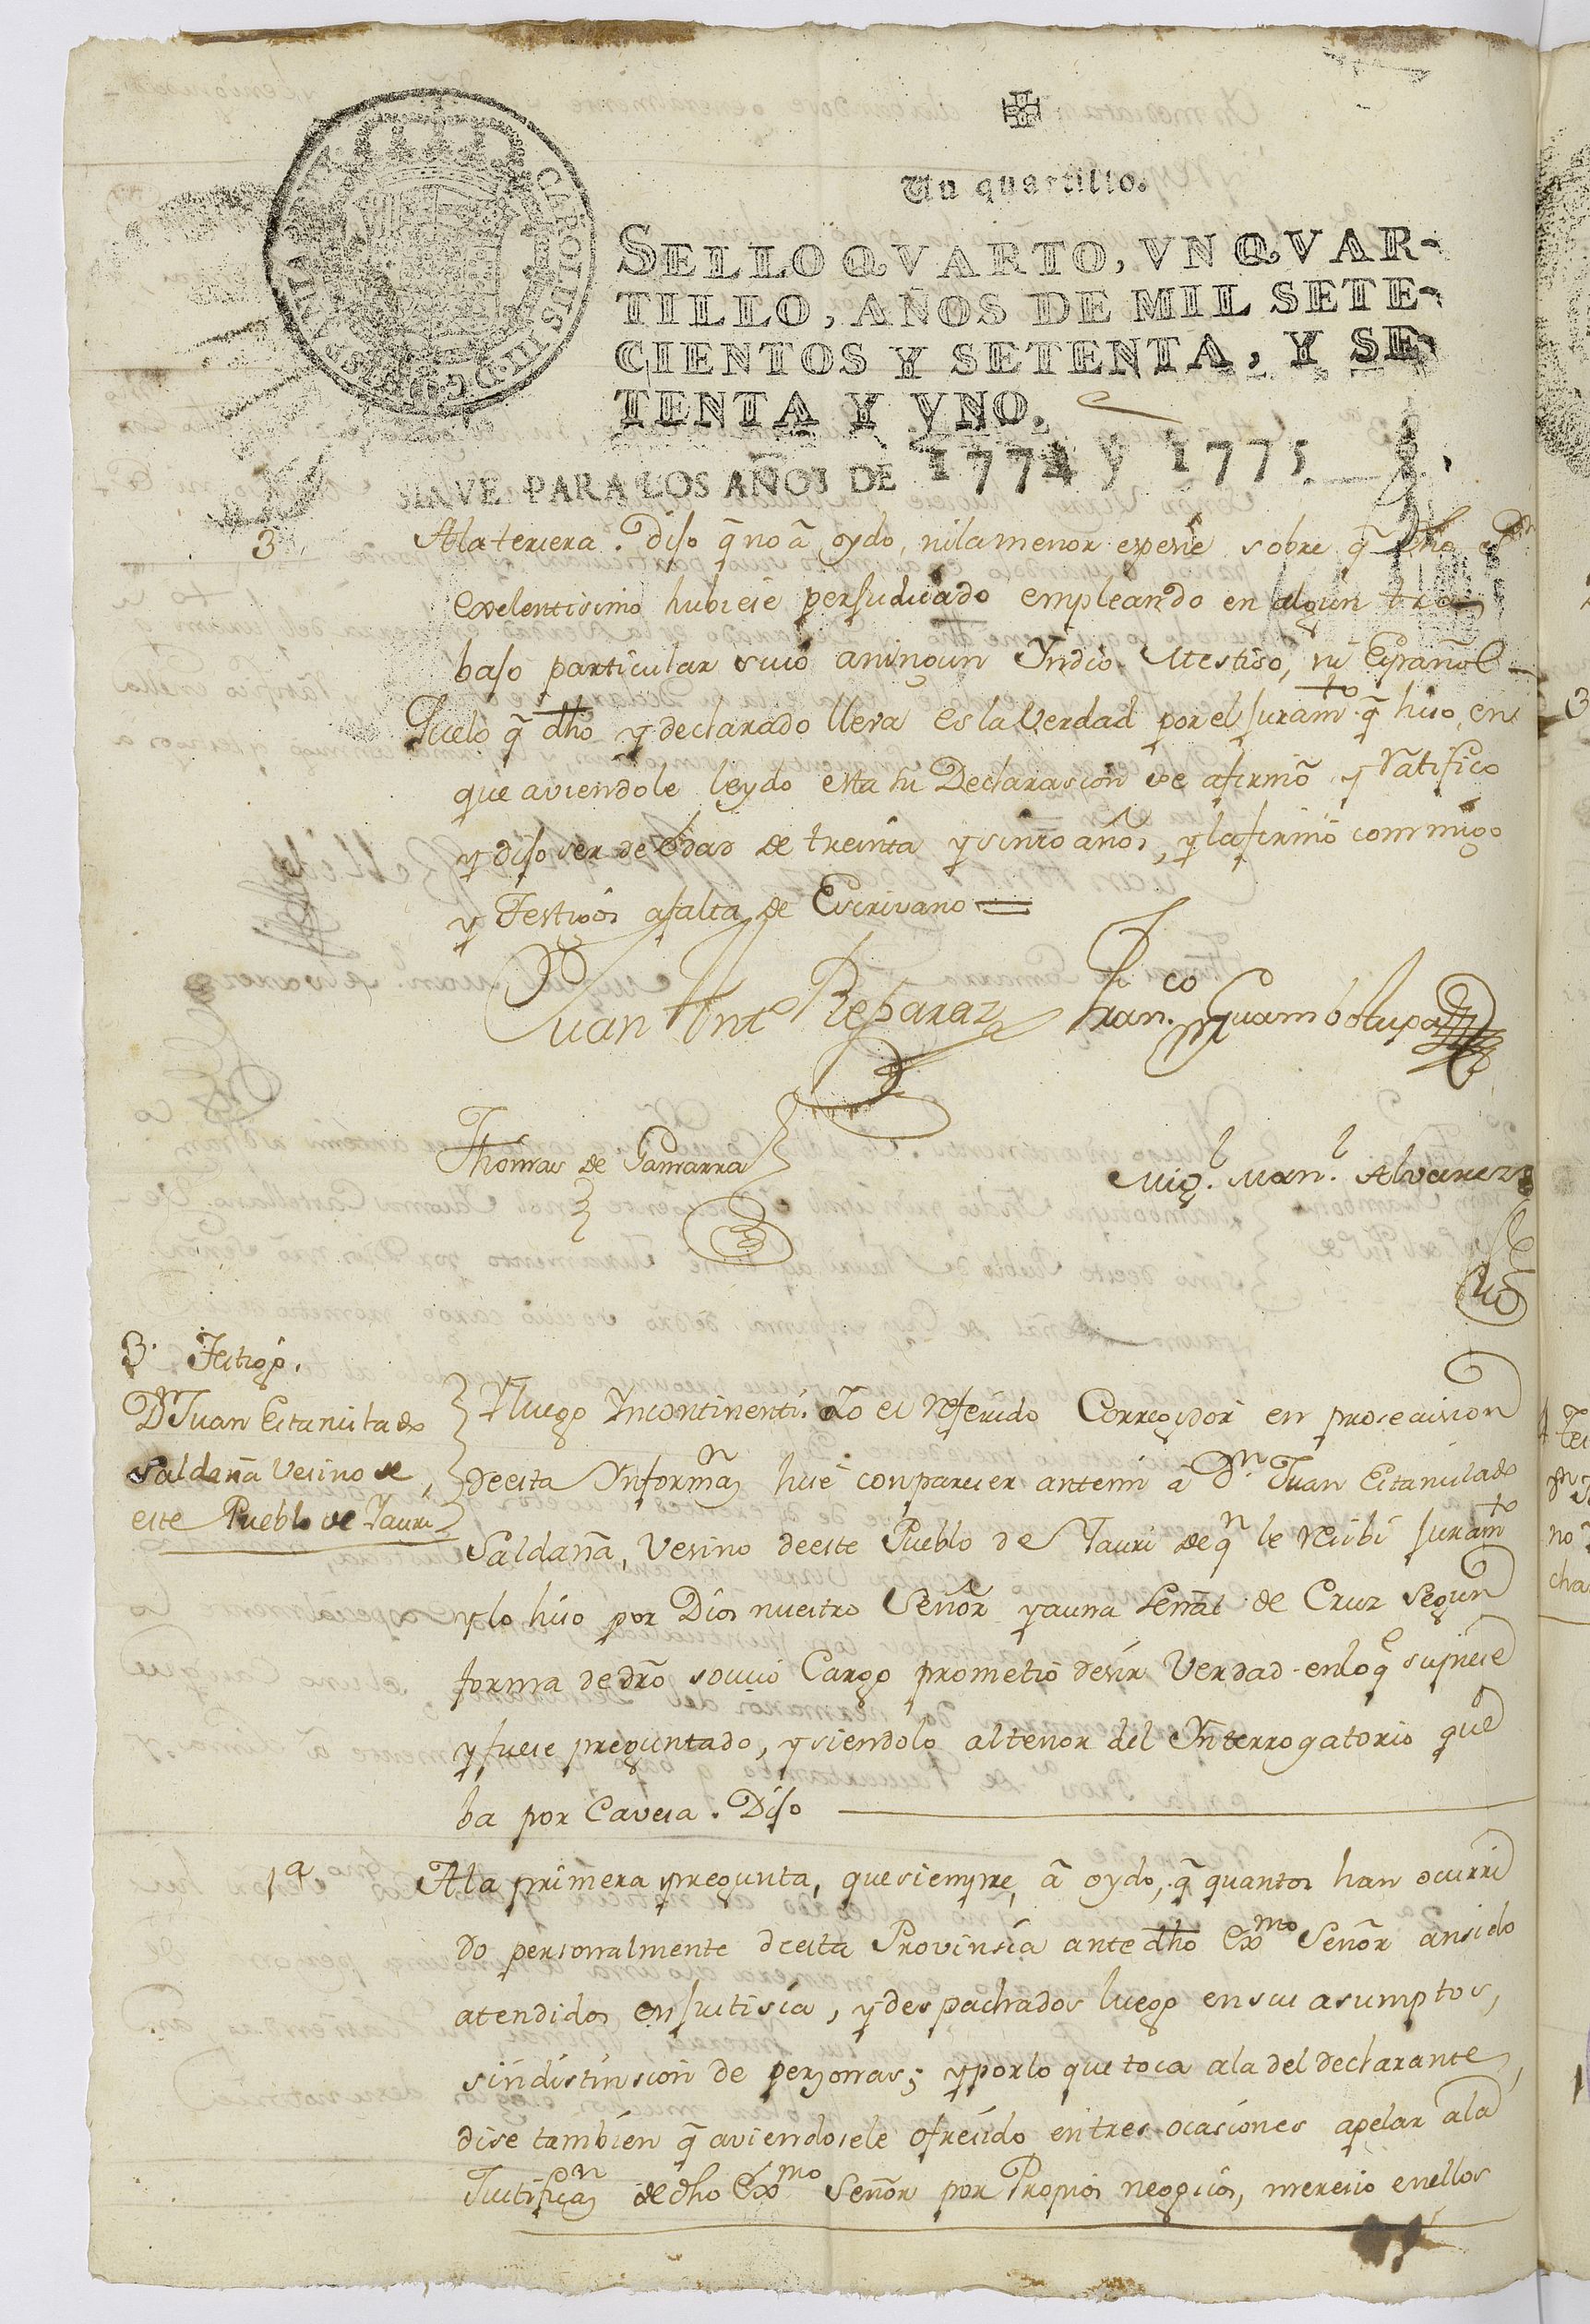 Un quartillo.
SELLO QVARTO, VN QVAR-
TILLO, AÑOS DE MIL SETE-
CIENTOS Y SETENTA, Y SE-
TENTA Y VNO.
SIRVE PARA LOS AÑOS DE 1774 y 1775
3 Ala tercera. Dijo q̃ no ã oydo, ni la menor especie sobre q̃ dho Sor
exelentisimo hubiese perjudicado empleando en algun tra
bajo particular suio aningun Yndio, Mestiso, ni Español
Yuelo q̃ dho y declarado lleva es la Verdad por el juramto q̃ hiso, en
que aviendole leydo esta su Declarasion se afirmõ y Ratifico
y dijo ser de Edad de treinta y sinco años, y la firmõ conmigo
y Testigos afalta de Escrivano
Juan Anto Reparaz Franco Guambotupa
Thomas de Gamarra Migl. Manl. Alvarez
3. Testigo.
Dn Juan Estanislado
Saldaña Vesino de
este Pueblo de Yauri
Yluego Yncontinenti. Yo el referido Corregidor en prosecusion
deesta Informan hise conparecer antemi ã Dn. Juan Estanislado
Saldaña, Vesino deeste Pueblo de Yauri de qn le resibi juramto
y lo hiso por Dios nuestro Señor y auna señal de Cruz segun
forma de dro socuio Cargo prometio desir Verdad enlo qe supiese
y fuese preguntado, y siendolo altenor del Ynterrogatorio que
ba por Cavesa. Dijo
1a Ala primera pregunta, que siempre, ã oydo, q̃ quantos han ocurri
do personalmente deesta Provinsia ante dho Exmo Señor ansido
atendidos en justisia, y despachados luego ensus asumptos,
sindistinsion de personas; y porlo que toca ala del declarante,
dise tambien q̃ aviendosele ofresido en tres ocasiones apelar ala
Justifican de dho Exmo Señor por Propios negosios, meresio enellos